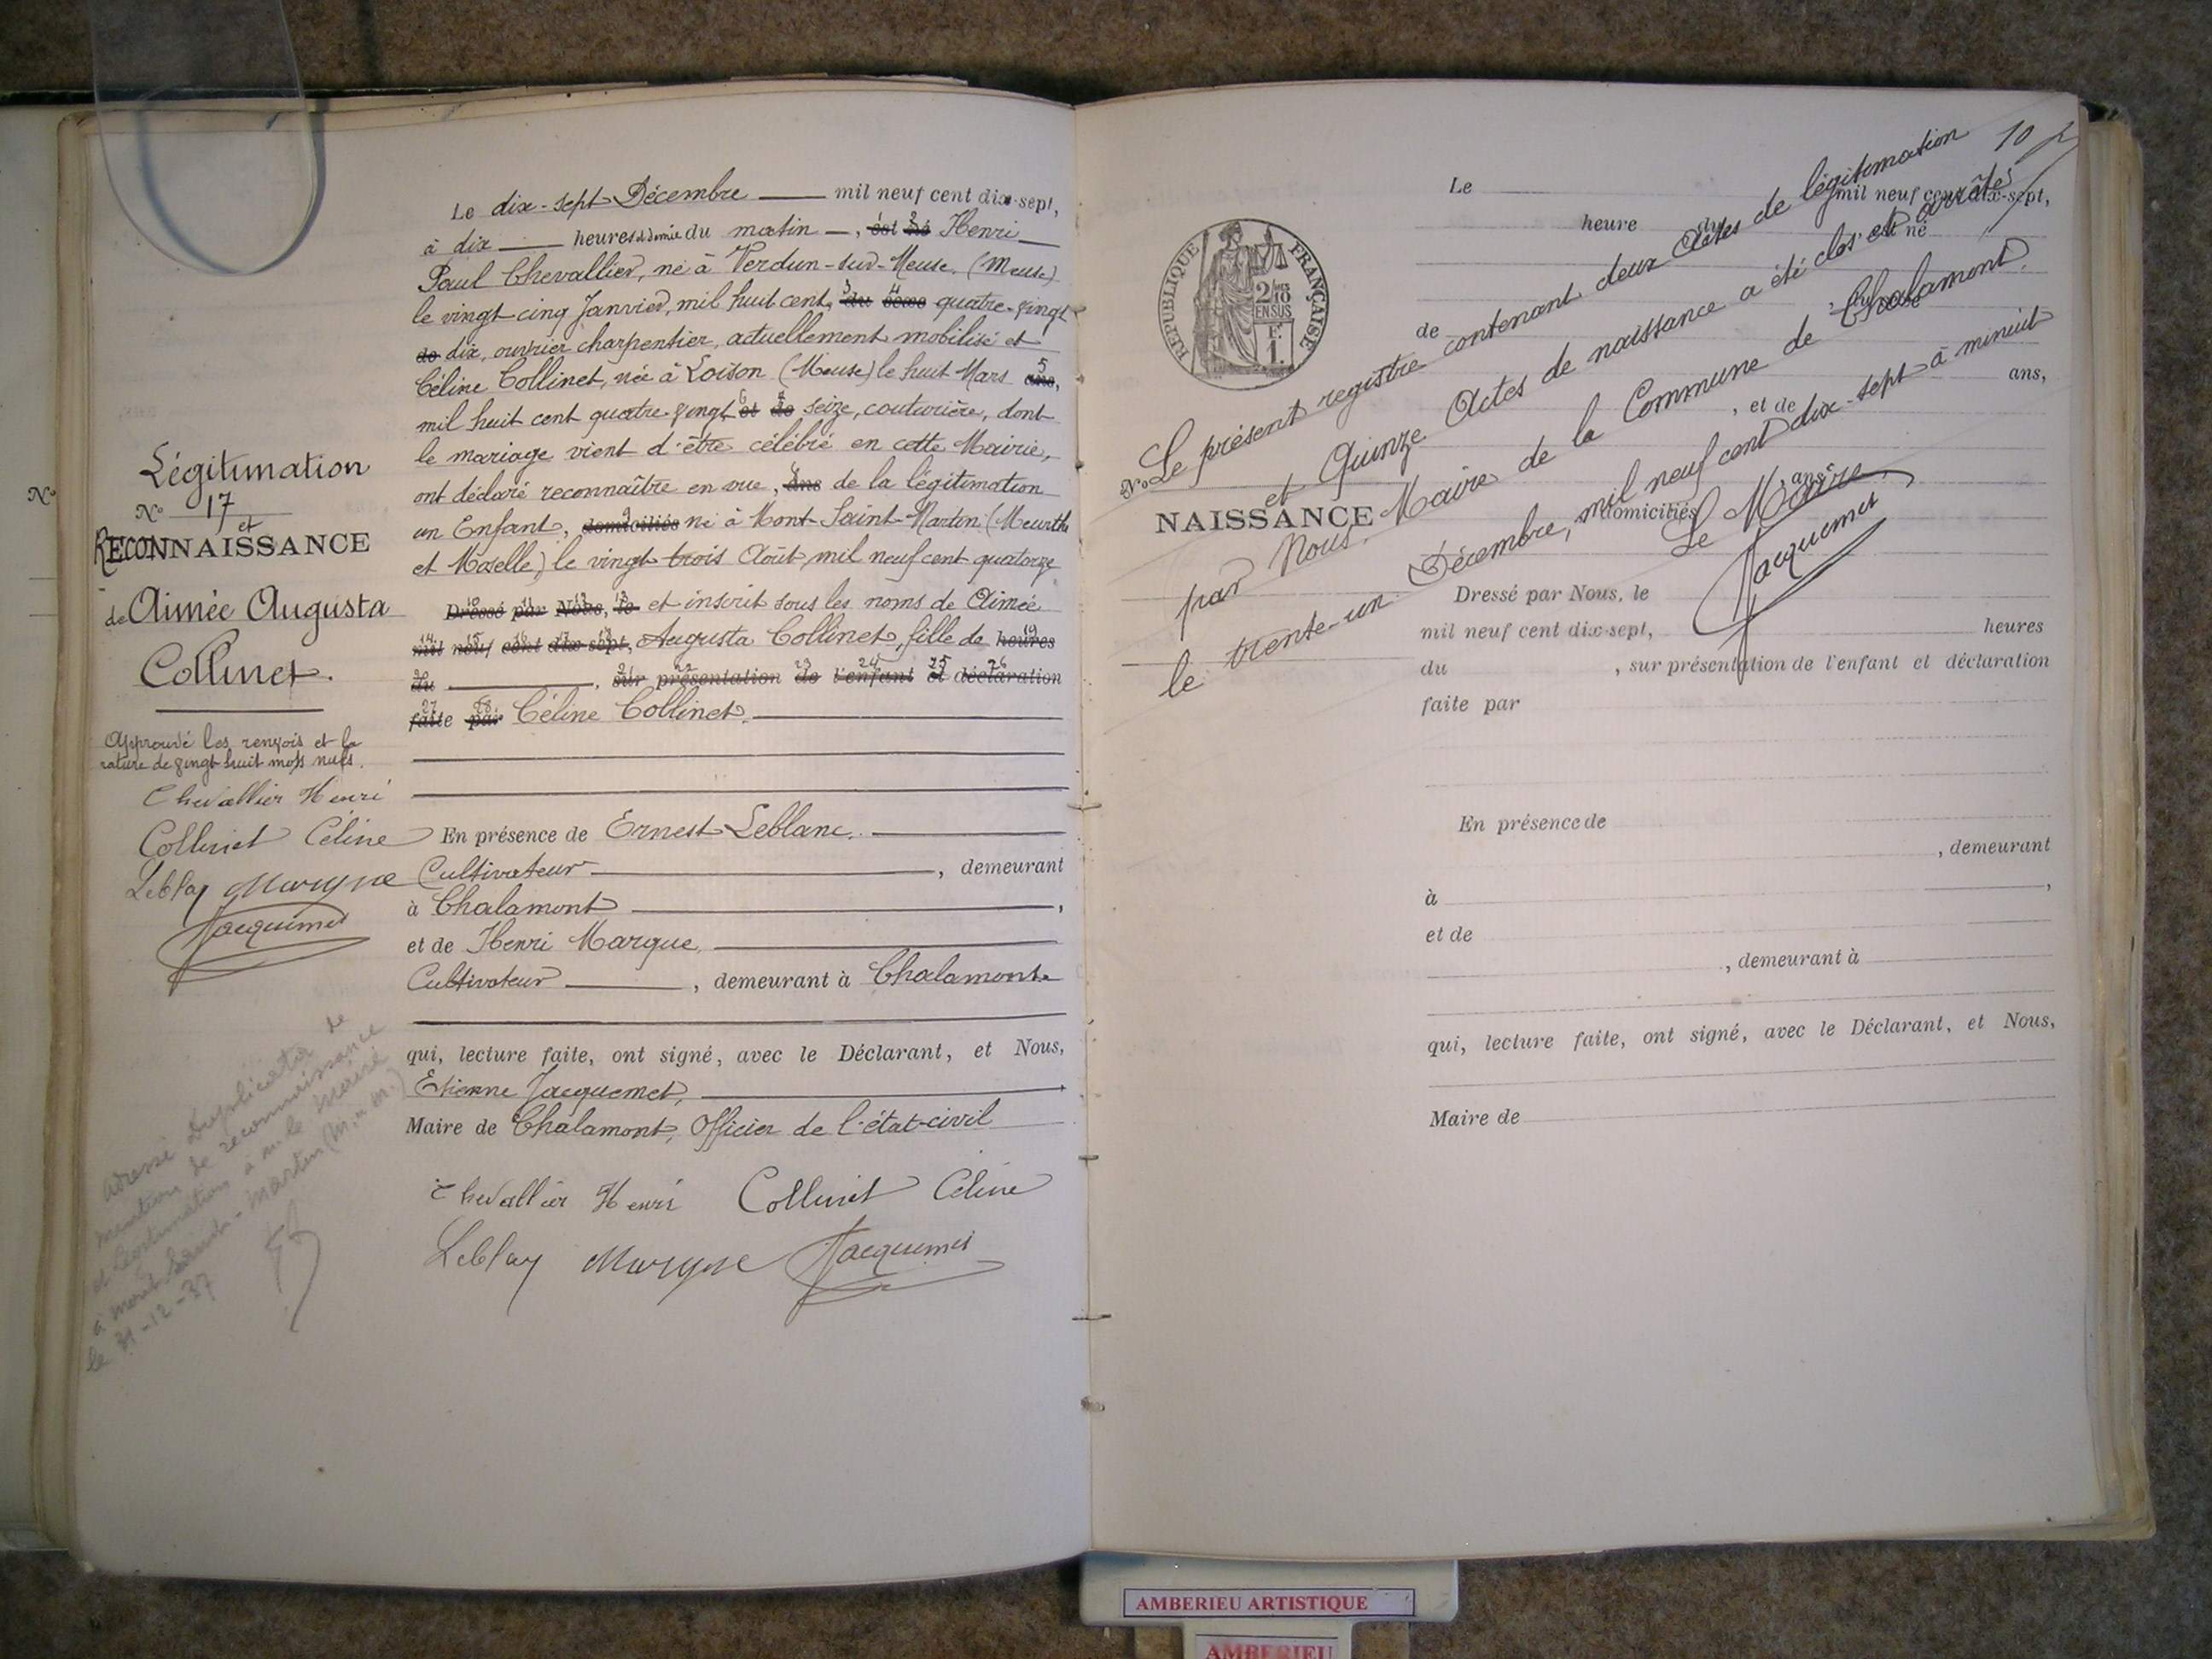 Légitimation
N° 17
et
RECONNAISSANCE
de Aimée Augusta
Collinet.
Approuvé les renvois et la
rature de vingt huit mots nuls.
Chevallier Henri
Collinet Céline
Leblanc Marque
Jacquemet
Adressé Duplicata de
mention de reconnaissance
et légitimation à M. le Maire
à Mont-Saint-Martin (M. et M.)
le 31-12-37
Le dix-sept Décembre mil neuf cent dix-sept,
à dix heures et demie du matin, est né Henri
Paul Chevallier, né à Verdun-sur-Meuse (Meuse)
le vingt cinq Janvier, mil huit cent, du quatre-vingt
de dix, ouvrier charpentier, actuellement mobilisé et
Céline Collinet, née à Loison (Meuse) le huit Mars ans,
mil huit cent quatre-vingt et de seize, couturière, dont
le mariage vient d'être célébré en cette Mairie,
ont déclaré reconnaître en vue, ans de la légitimation
un Enfant, domiciliés né à Mont-Saint-Martin (Meurthe
et Moselle), le vingt trois Août, mil neuf cent quatorze
Dressé par Nous, le et inscrit sous les noms de Aimée
mil neuf cent dix-sept, Augusta Collinet, fille de heures
du , sur présentation de l'enfant et déclaration
faite par Céline Collinet.
En présence de Ernest Leblanc.
Cultivateur , demeurant
à Chalamont ,
et de Henri Marque
Cultivateur , demeurant à Chalamont
qui, lecture faite, ont signé, avec le Déclarant, et Nous,
Etienne Jacquemet,
Maire de Chalamont, Officier de l'état-civil
Chevallier Henri Collinet Céline
Leblanc Marque Jacquemet
N°
10
REPUBLIQUE FRANÇAISE
2/10 EN SUS
F. 1.
Le présent registre contenant deux Actes de légitimation
et Quinze Actes de naissance a été clos et arrêté
par Nous, Maire de la Commune de Chalamont.
le trente-un Décembre, mil neuf cent dix-sept à minuit
Le Maire
Jacquemet
N°
NAISSANCE
Le mil neuf cent dix-sept,
heure du né
de
ans,
, et de
ans,
domiciliés
Dressé par Nous, le
mil neuf cent dix-sept, heures
du , sur présentation de l'enfant et déclaration
faite par
En présence de
, demeurant
à ,
et de
, demeurant à
qui, lecture faite, ont signé, avec le Déclarant, et Nous,
Maire de
AMBERIEU ARTISTIQUE
AMBERIEU